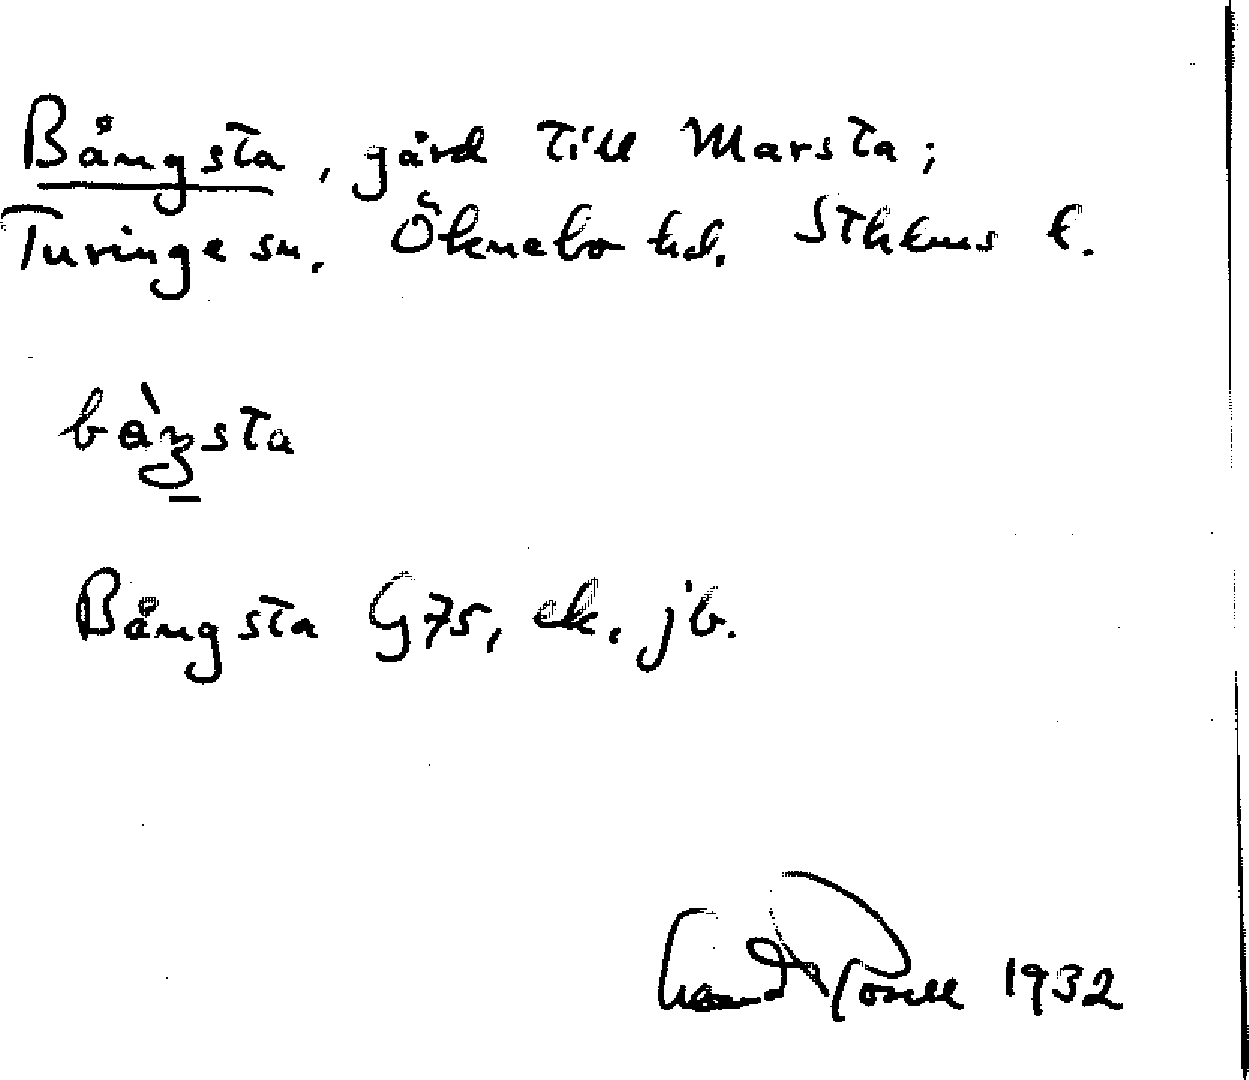 Bångsta, gård till Marsta;
Turinge sn. Öknebo hd. Sthlms l.
Bångsta G75, ek. jb.
1932